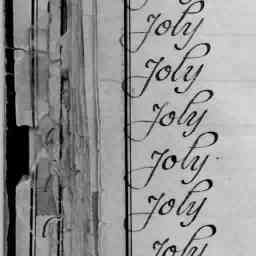 Joly
Joly
Joly
Joly
Joly
Joly